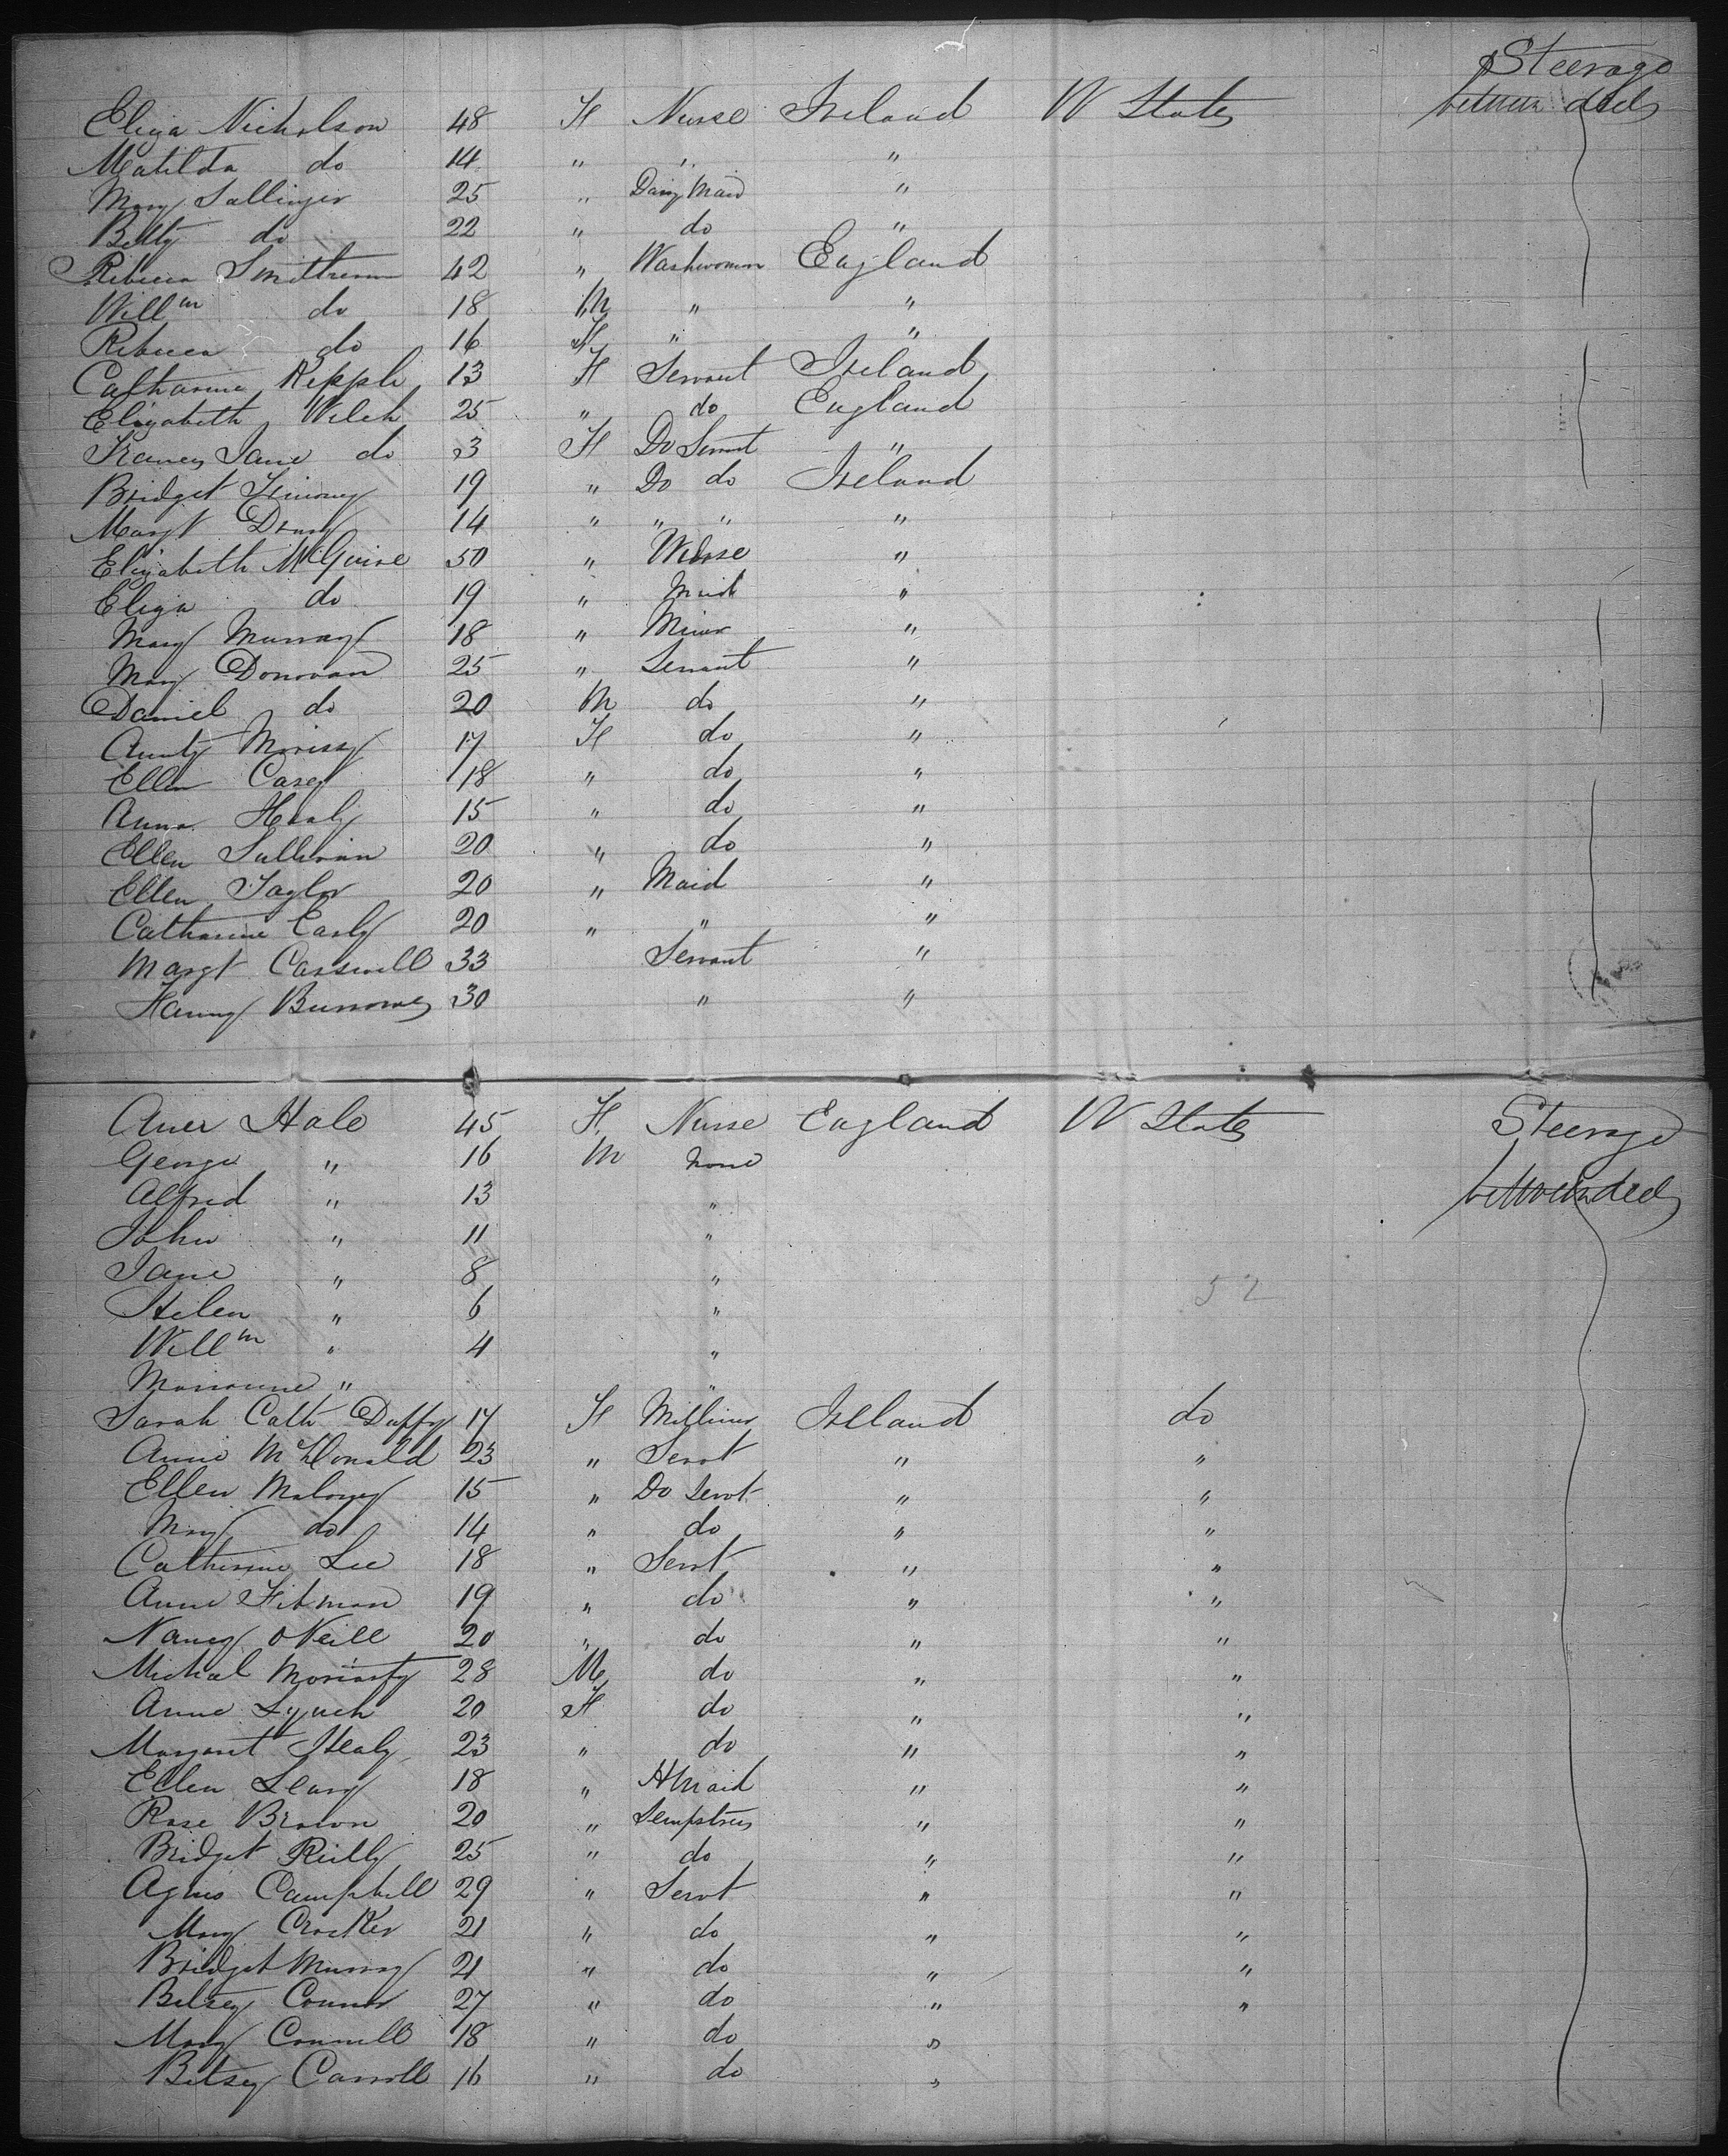 Steerage
Eliza Nicholson 48 F Nurse Ireland U States between decks
Matilda do 14 " " "
Mary Sallinger 25 " Dairy Maid "
Betty do 22 " do "
Rebecca 42 " Washwoman England
Willm do 18 M " "
Rebecca do 16 F " "
Catharine Ripple 13 F Servant Ireland
Elizabeth Welch 25 " do England
Frances Jane do 3 F Do Servant "
Bridget 19 " Do do Ireland
Margt 14 " " " "
Elizabeth McGuire 50 " "
Eliza do 19 " Maid "
Mary Murray 18 " "
Mary Donovan 25 " Servant "
Daniel do 20 M do "
Morissy 17 F do "
Ellen Casey 18 " do "
Anna Healy 15 " do "
Ellen Sullivan 20 " do "
Ellen Taylor 20 " Maid "
Catharine Early 20 " " "
Margt Carswell 33 Servant "
Burrowes 30 " "
Hale 45 F. Nurse England U States Steerage
George " 16 M none
between decks
Alfred " 13 "
John " 11 "
Jane " 8 "
52
Helen " 6 "
Willm " 4 "
Marianne " "
Sarah Cath Duffy 17 F Milliner Ireland do
Annie McDonald 23 " Servt " "
Ellen Maloney 15 " Do Servt " "
Mary do 14 " do " "
Catherine Lee 18 " Servt " "
Anne 19 " do " "
Nancy O Neill 20 " do " "
Michael Moriarty 28 M do " "
Anne Lynch 20 F do " "
Margaret Healy 23 " do " "
Ellen Leary 18 " H Maid " "
Rose Brown 20 " Sempstress " "
Bridget Reilly 25 " do " "
Agnes Campbell 29 " Servt " "
Mary Crocker 21 " do " "
Bridget Murray 21 " do " "
Betsey Connor 27 " do " "
Mary Connell 18 " do "
Betsey Carroll 16 " do "